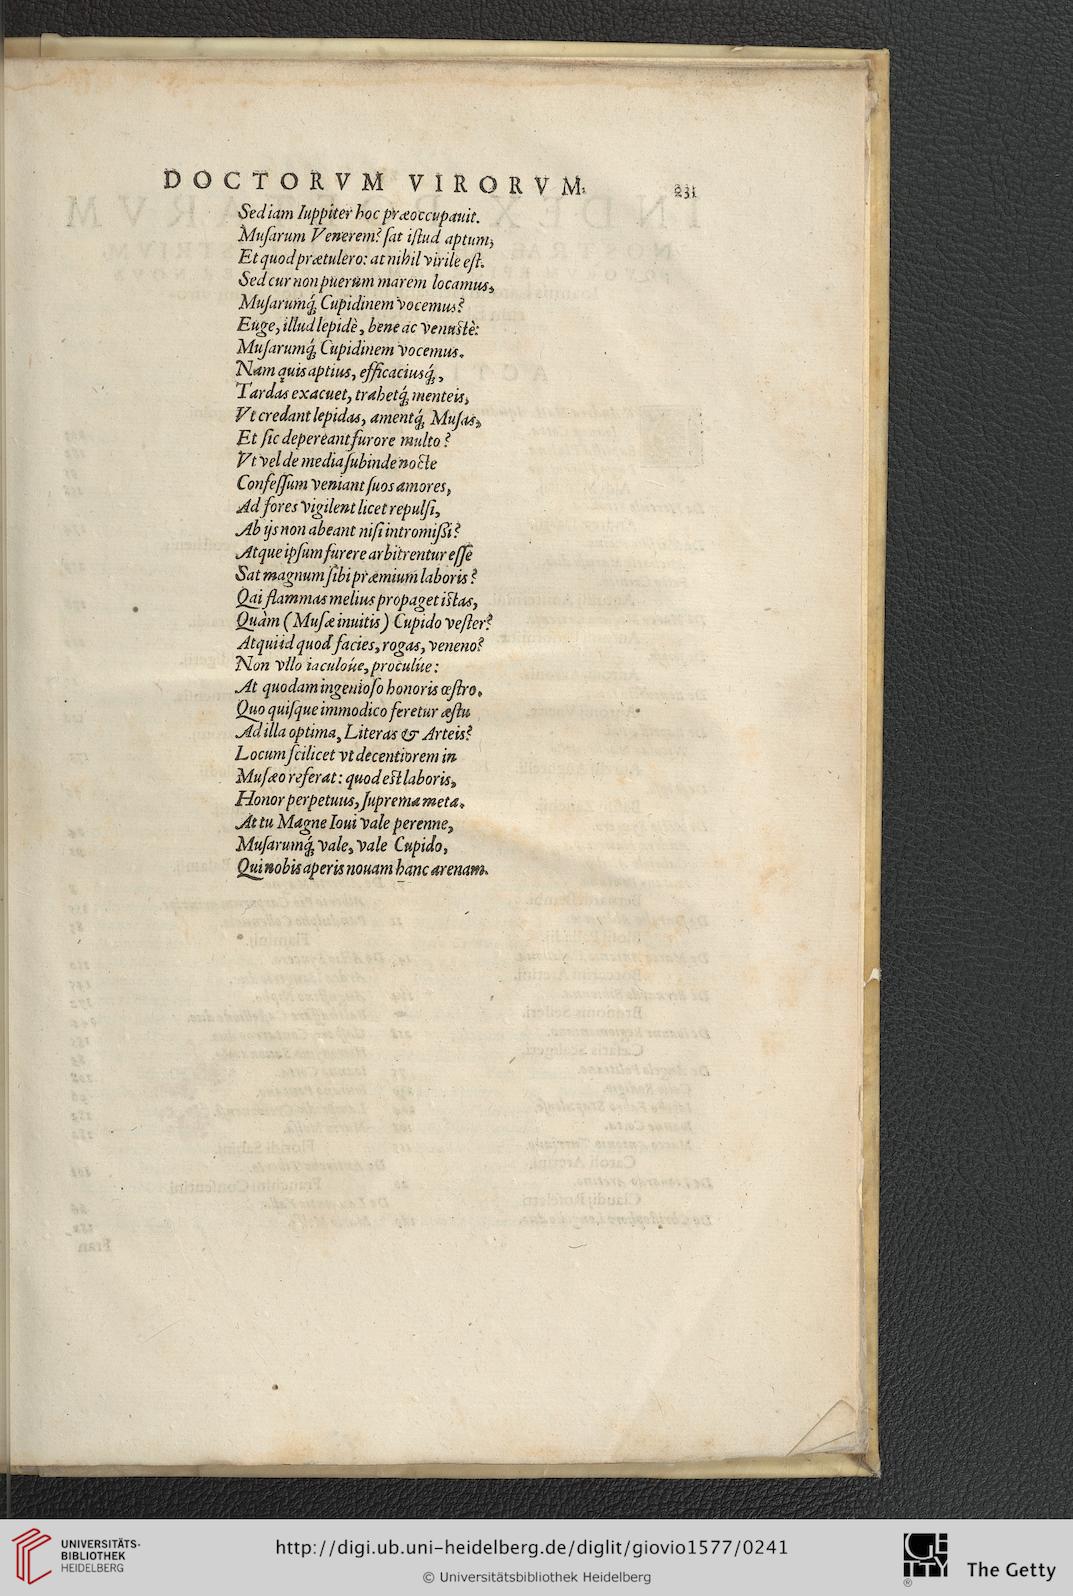 DOCTORVM VIRORVM. 231
Sed iam Iuppiter hoc præoccupauit.
Muſarum Venerem? ſat iſtud aptum,
Et quod prætulero: at nihil virile eſt.
Sed cur non puerum marem locamus,
Muſarumq́; Cupidinem vocemus?
Euge, illud lepidè, bene ac venustè:
Muſarumq́; Cupidinem vocemus.
Nam quis aptius, efficaciusq́;,
Tardas exacuet, trahetq́; menteis,
Vt credant lepidas, amentq́; Muſas,
Et ſic depereant furore multo?
Vt vel de media ſubinde nocte
Confeſſum veniant ſuos amores,
Ad fores vigilent licet repulſi,
Ab ijs non abeant niſi intromiſſi?
Atque ipſum furere arbitrentur eſſe
Sat magnum ſibi præmium laboris?
Qai flammas melius propaget istas,
Quàm (Muſæ inuitis) Cupido veſter?
Atqui id quod facies, rogas, veneno?
Non vllo iaculóue, proculúe:
At quodam ingenioſo honoris œſtro.
Quo quiſque immodico feretur æſtu
Ad illa optima, Literas & Arteis?
Locum ſcilicet vt decentiorem in
Muſæo referat: quod est laboris,
Honor perpetuus, ſuprema meta.
At tu Magne Ioui vale perenne,
Muſarumq́; vale, vale Cupido,
Qui nobis aperis nouam hanc arenam.
UNIVERSITÄTS-
BIBLIOTHEK
HEIDELBERG
http://digi.ub.uni-heidelberg.de/diglit/giovio1577/0241
© Universitätsbibliothek Heidelberg
The Getty